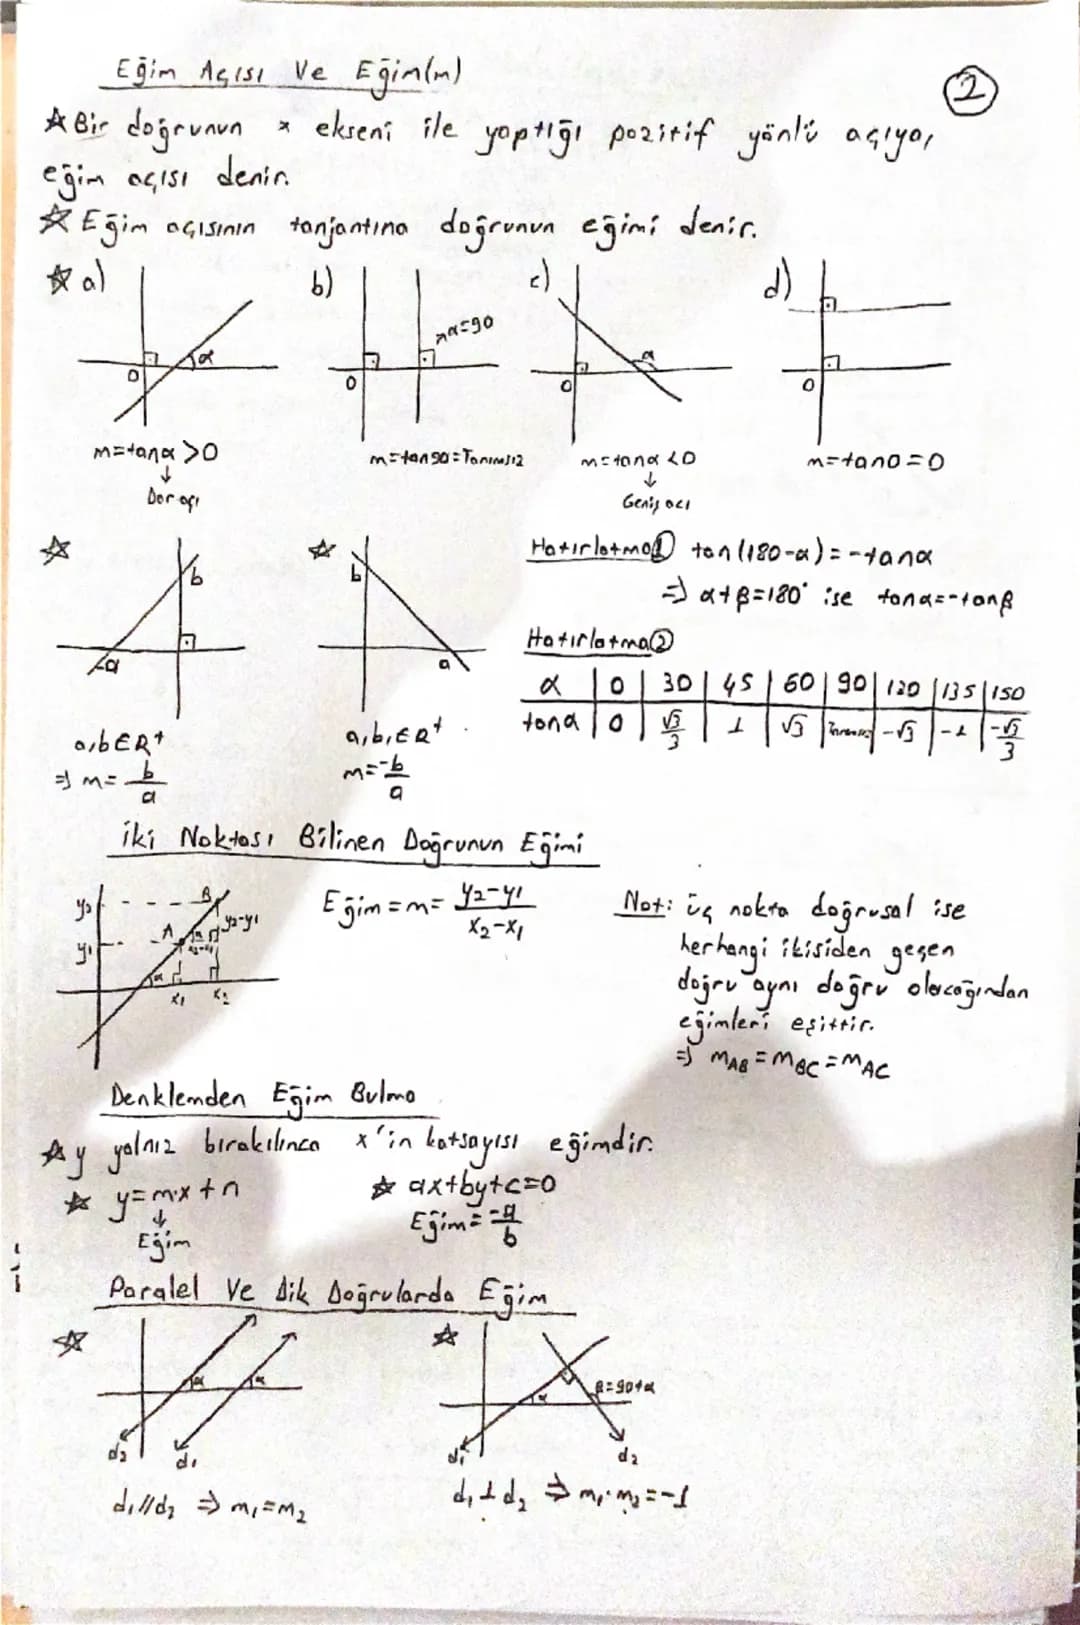 Eğim Açısı Ve Eğim(m)
2
☆ Bir doğrunun x ekseni ile yaptığı pozitif yönlü açıya,
eğim açısı denir.
☆ Eğim açısının tanjantına doğrunun eğimi denir.
☆ a) b) c) d)
α α=90 α
0 0 0 0
m=tanα>0 m=tan90=Tanımsız m=tanα<0 m=tan0=0
↓ ↓
Dar açı Geniş açı
☆ ☆
b b
-a a
a,b∈R⁺ a,b,∈R⁺
⇒ m=b/a m=-b/a
Hatırlatma① tan(180-α)=-tanα
⇒ α+β=180° ise tanα=-tanβ
Hatırlatma②
α | 0 | 30 | 45 | 60 | 90 | 120 | 135 | 150
tanα | 0 | √3/3 | 1 | √3 | Tanımsız | -√3 | -1 | -√3/3
İki Noktası Bilinen Doğrunun Eğimi
y₂ B
y₁ A α y₂-y₁
x₂-x₁
α
x₁ x₂
Eğim=m= y₂-y₁/x₂-x₁
Not: üç nokta doğrusal ise
herhangi ikisiden geçen
doğru aynı doğru olacağından
eğimleri eşittir.
⇒ mAB=mBC=mAC
Denklemden Eğim Bulma
☆ y yalnız bırakılınca x'in katsayısı eğimdir.
☆ y=m.x+n ☆ ax+by+c=0
↓
Eğim Eğim=-a/b
Paralel Ve Dik Doğrularda Eğim
☆ ☆
α α α β=90+α
d₂ d₁ d₁ d₂
d₁//d₂ ⇒ m₁=m₂ d₁⊥d₂ ⇒ m₁.m₂=-1